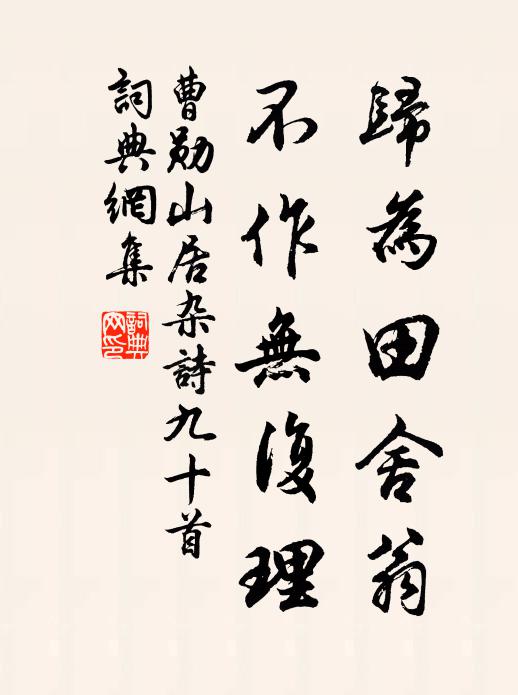 歸為田舍翁
不作無復理
曹勛山居杂詩九十首
詞典網集
詞典
网印